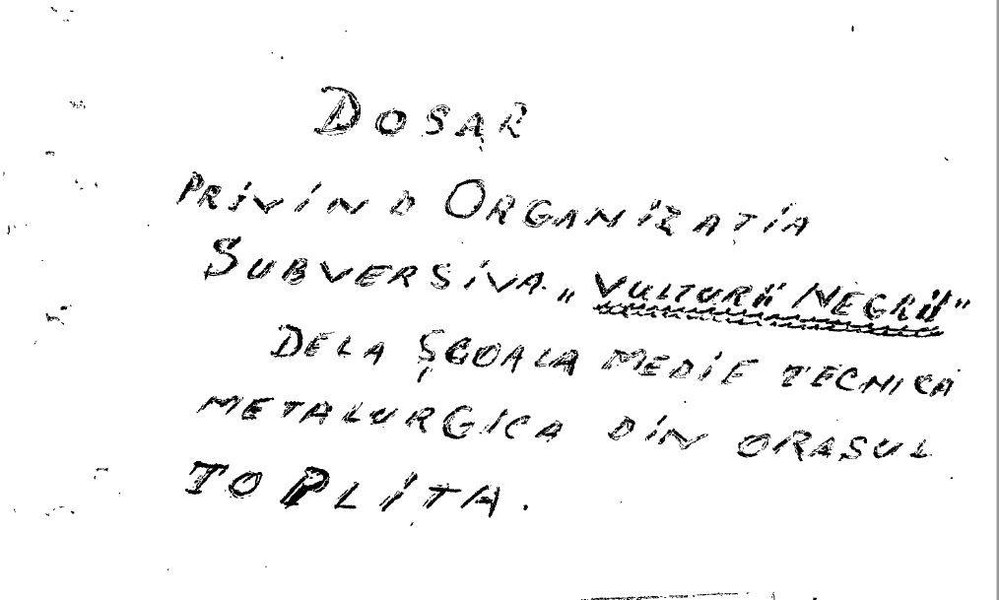 DOSAR
PRIVIND ORGANIZAȚIA
SUBVERSIVA „VULTURII NEGRII”
DELA ȘCOALA MEDIE TECNICA
METALURGICA DIN ORASUL
TOPLITA.